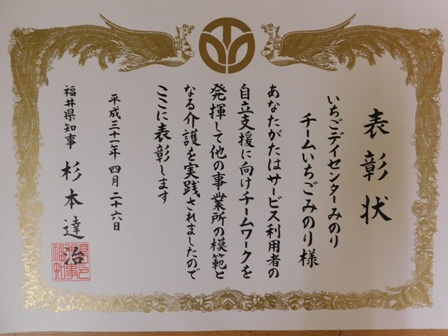 表彰状
いちごデイセンターみのり
チームいちごみのり様
あなたがたはサービス利用者の
自立支援に向けチームワークを
発揮して他の事業所の模範と
なる介護を実践されましたので
ここに表彰します
平成三十一年四月二十六日
福井県知事 杉本達治